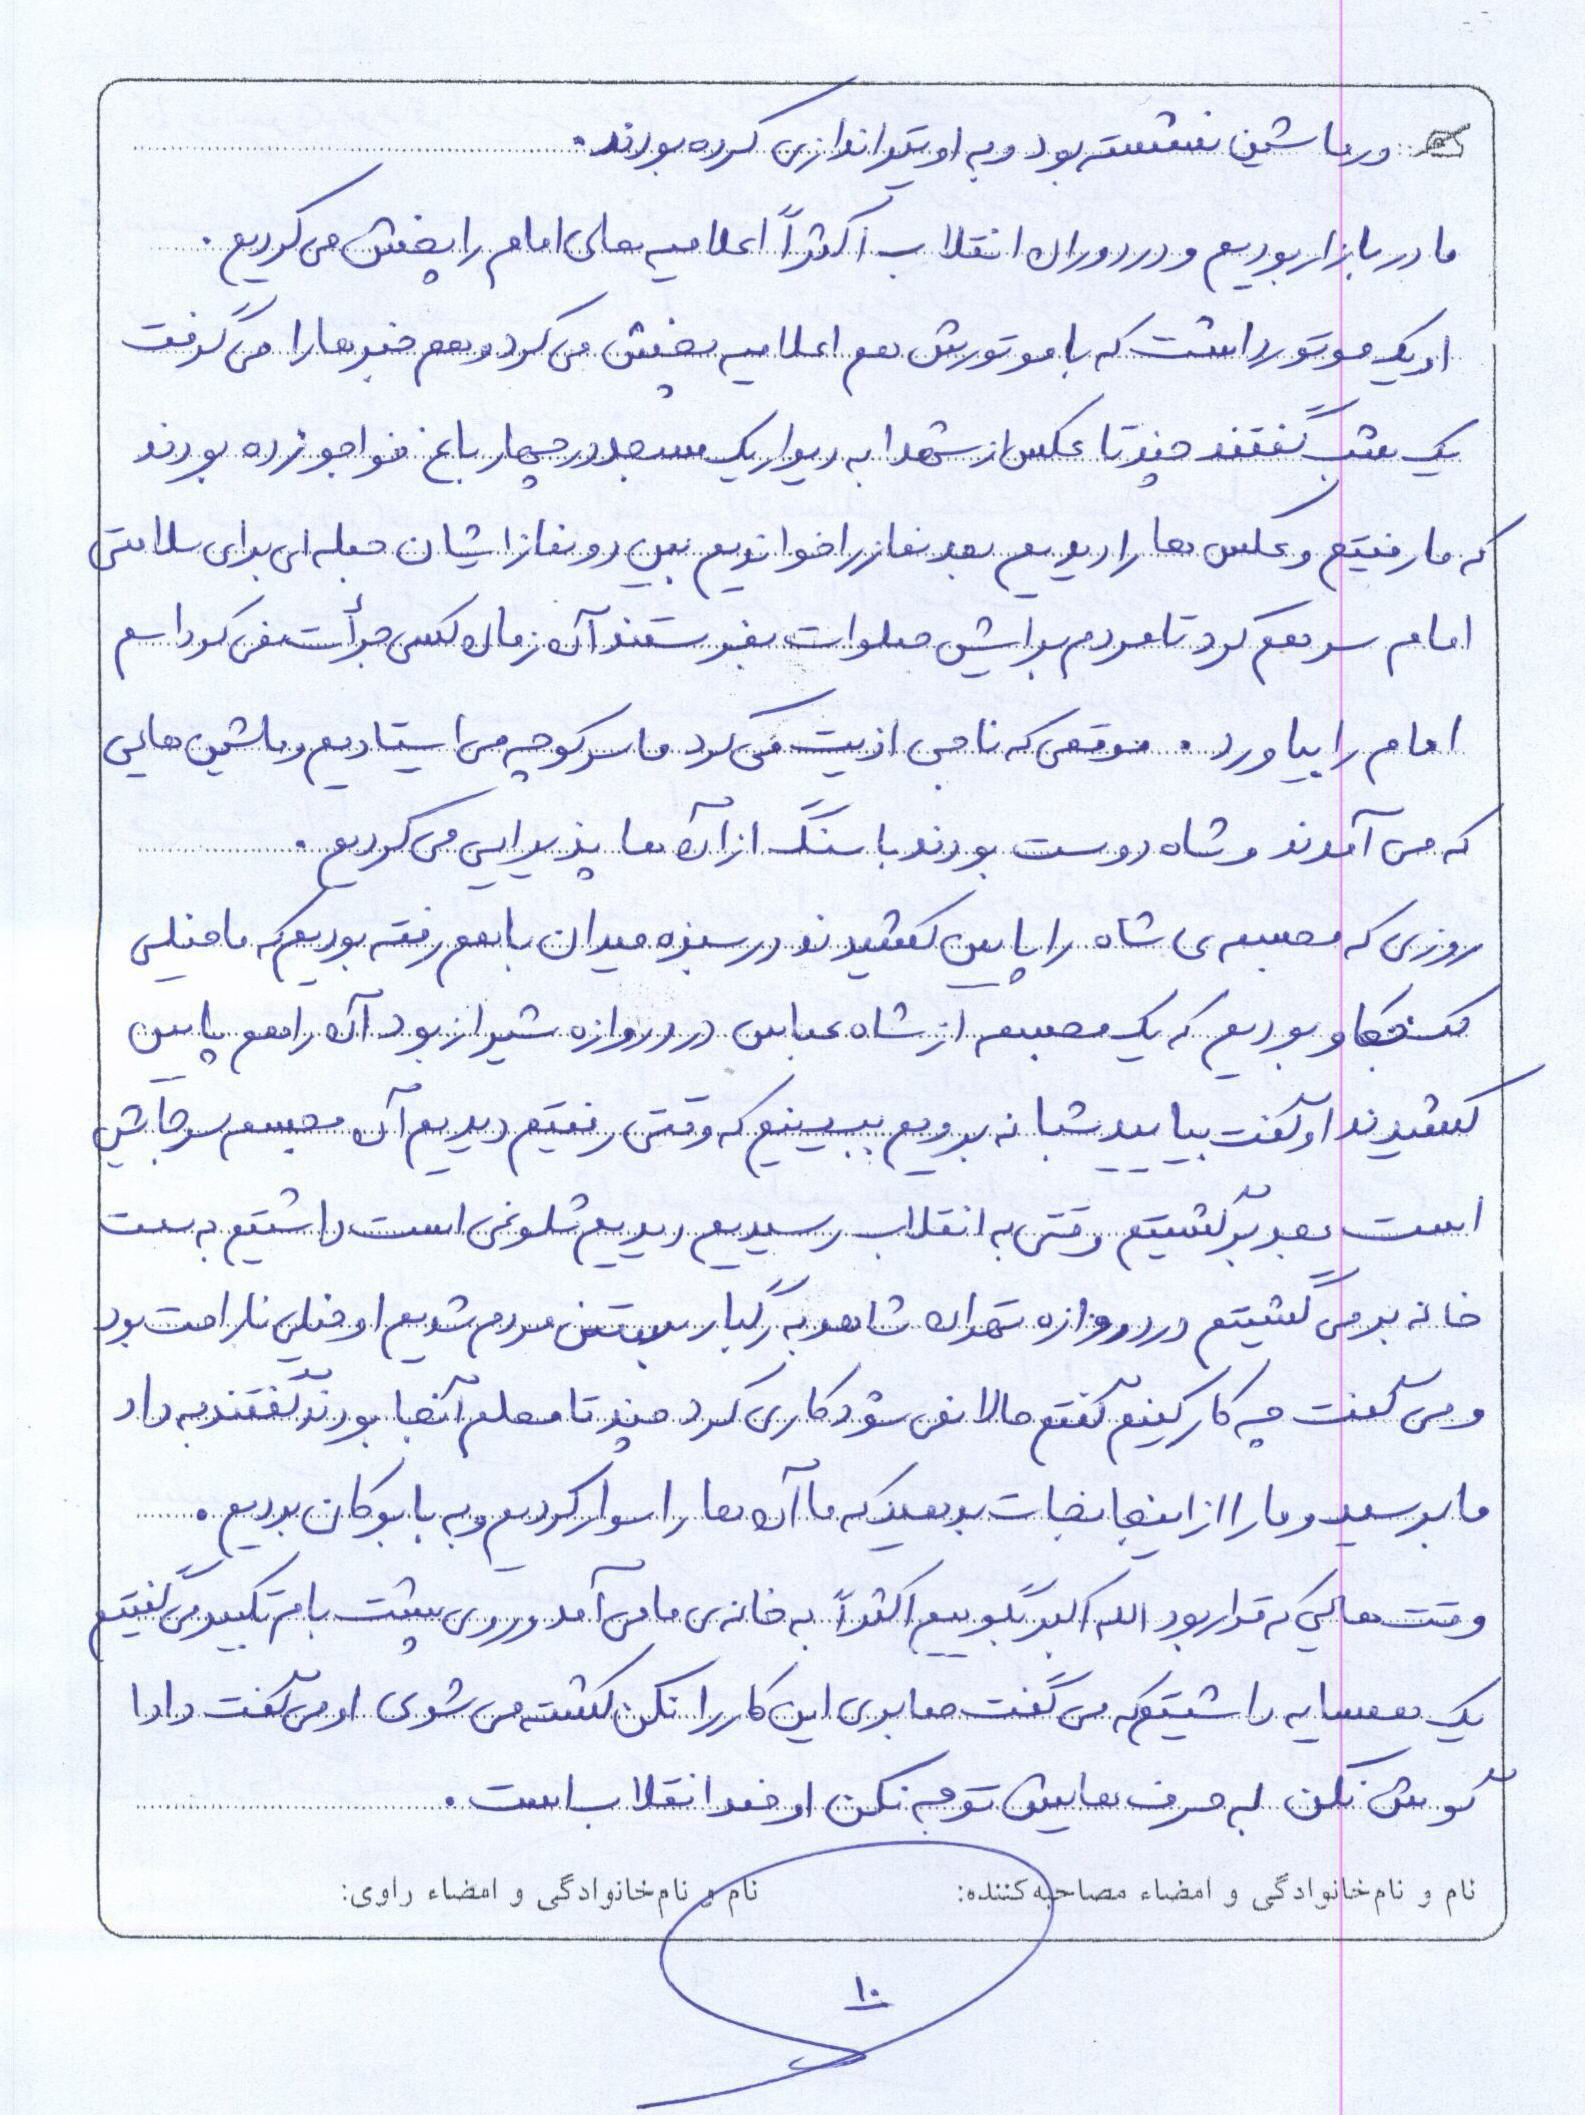 در ماشین نشسته بود و به او تیراندازی کرده بودند.
ما در بازار بودیم و در دوران انقلاب اکثراً اعلامیه های امام را پخش می کردیم.
او یک موتور داشت که با موتورش هم اعلامیه پخش می کرد و هم خبرها را می گرفت
یک شب گفتند چند تا عکس از شهدا به دیوار یک مسجد در چهار باغ خواجو زده بودند
که ما رفتیم و عکس ها را دیدیم بعد نماز را خواندیم بین دو نماز ایشان جمله ای برای سلامتی
امام سر هم کرد تا مردم برایش صلوات بفرستند آن زمان کسی جرأت نمی کرد اسم
امام را بیاورد. موقعی که ناجی اذیت می کرد ما سر کوچه می ایستادیم و ماشین هایی
که می آمدند و شاه دوست بودند با سنگ از آن ها پذیرایی می کردیم.
روزی که مجسمه ی شاه را پایین کشیدند در سبزه میدان با هم رفته بودیم که ما خیلی
کنجکاو بودیم که یک مجسمه از شاه عباس در دروازه شیراز بود آن را هم پایین
کشیدند او گفت بیایید شبانه برویم ببینیم که وقتی رفتیم دیدیم آن مجسمه سر جایش
است بعد برگشتیم وقتی به انقلاب رسیدیم دیدیم شلوغی است داشتیم به سمت
خانه بر می گشتیم در دروازه تهران شاهد به رگبار بستن مردم شدیم او خیلی ناراحت بود
و می گفت چه کار کنیم گفتم حالا نمی شود کاری کرد چند تا معلم آنجا بودند گفتند به داد
ما برسید و ما را از اینجا نجات بدهید که ما آن ها را سوار کردیم و به بابوکان بردیم.
وقت هایی که قرار بود الله اکبر بگوییم اکثراً به خانه ی ما می آمد و روی پشت بام تکبیر می گفتیم
یک همسایه داشتیم که می گفت صابری این کار را نکن کشته می شوی او می گفت دادا
گوش نکن به حرف هایش توجه نکن او ضد انقلاب است.
نام و نام‌خانوادگی و امضاء مصاحبه‌کننده: نام و نام‌خانوادگی و امضاء راوی:
۱۰